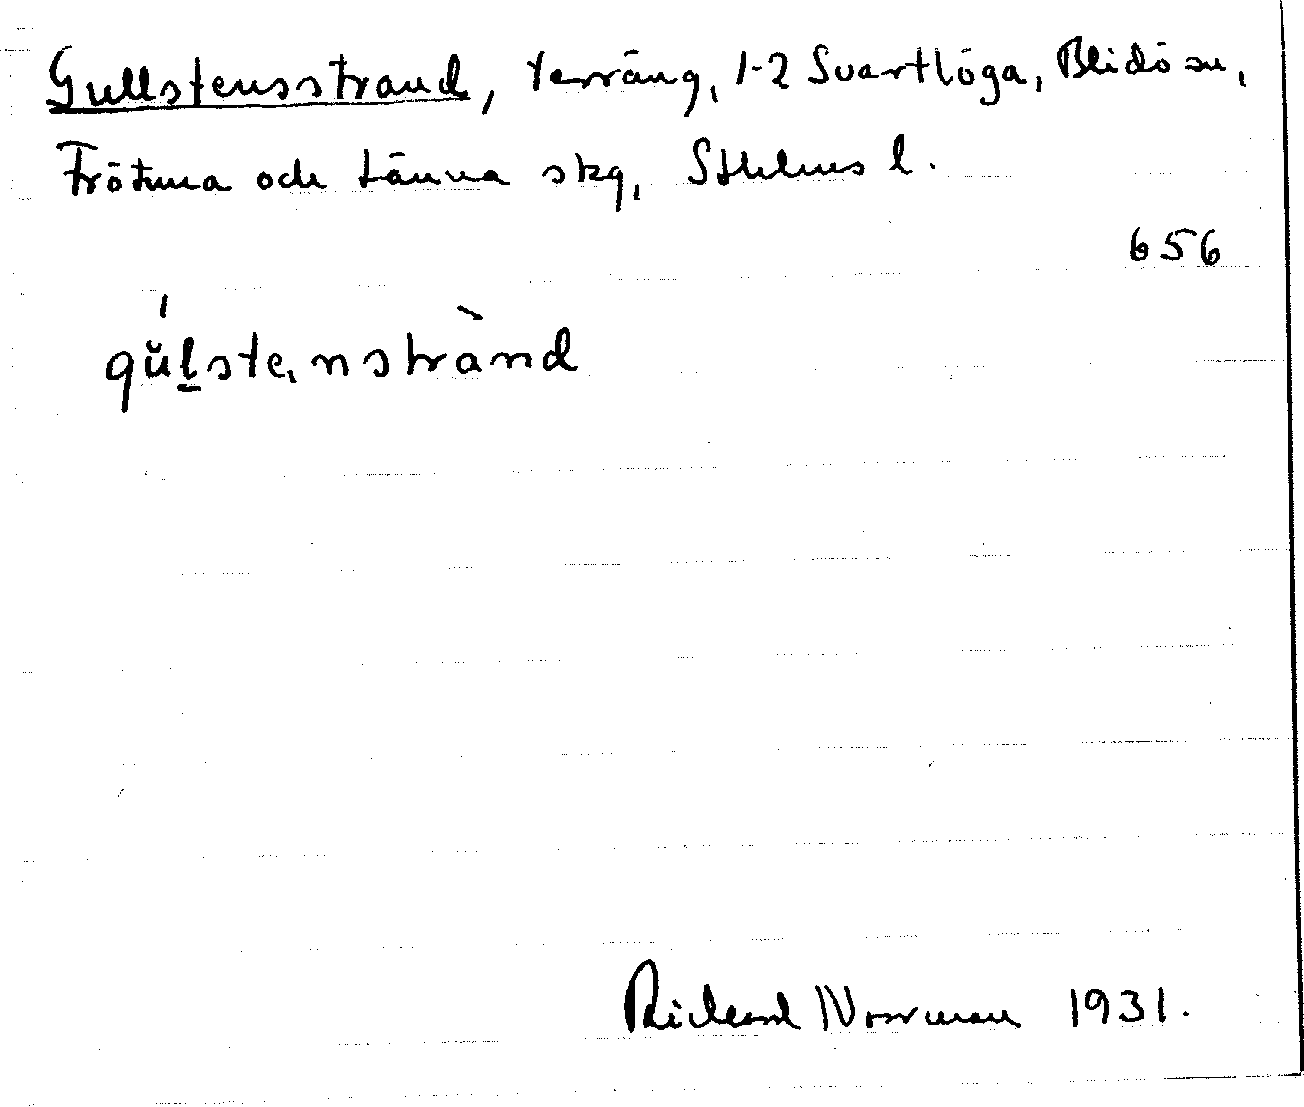 Gullstensstrand, terräng, 1-2 Svartlöga, Blidö sn,
Frötuna och Länna skg, Sthlms l.
656
gŭlste̩nstrànd
Rickard Norrman 1931.